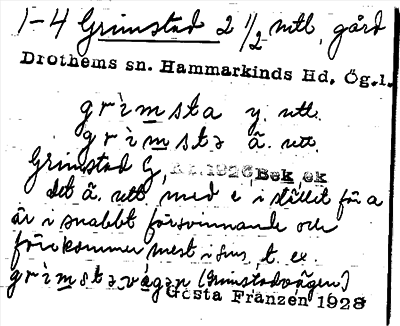 1-4 Grimstad 2 1/2 mtl, gård
Drothems sn. Hammarkinds Hd, Ög.l.
grìmsta y. utt.
grìmstə ä. utt.
Grimstad G, 1926 Bek ek
det ä. utt. med e i stället för a
är i snabbt försvinnande och
förekommer mest i sms, t. ex.
grìmstəvägən (Grimstadvägen)
Gösta Franzén 1928